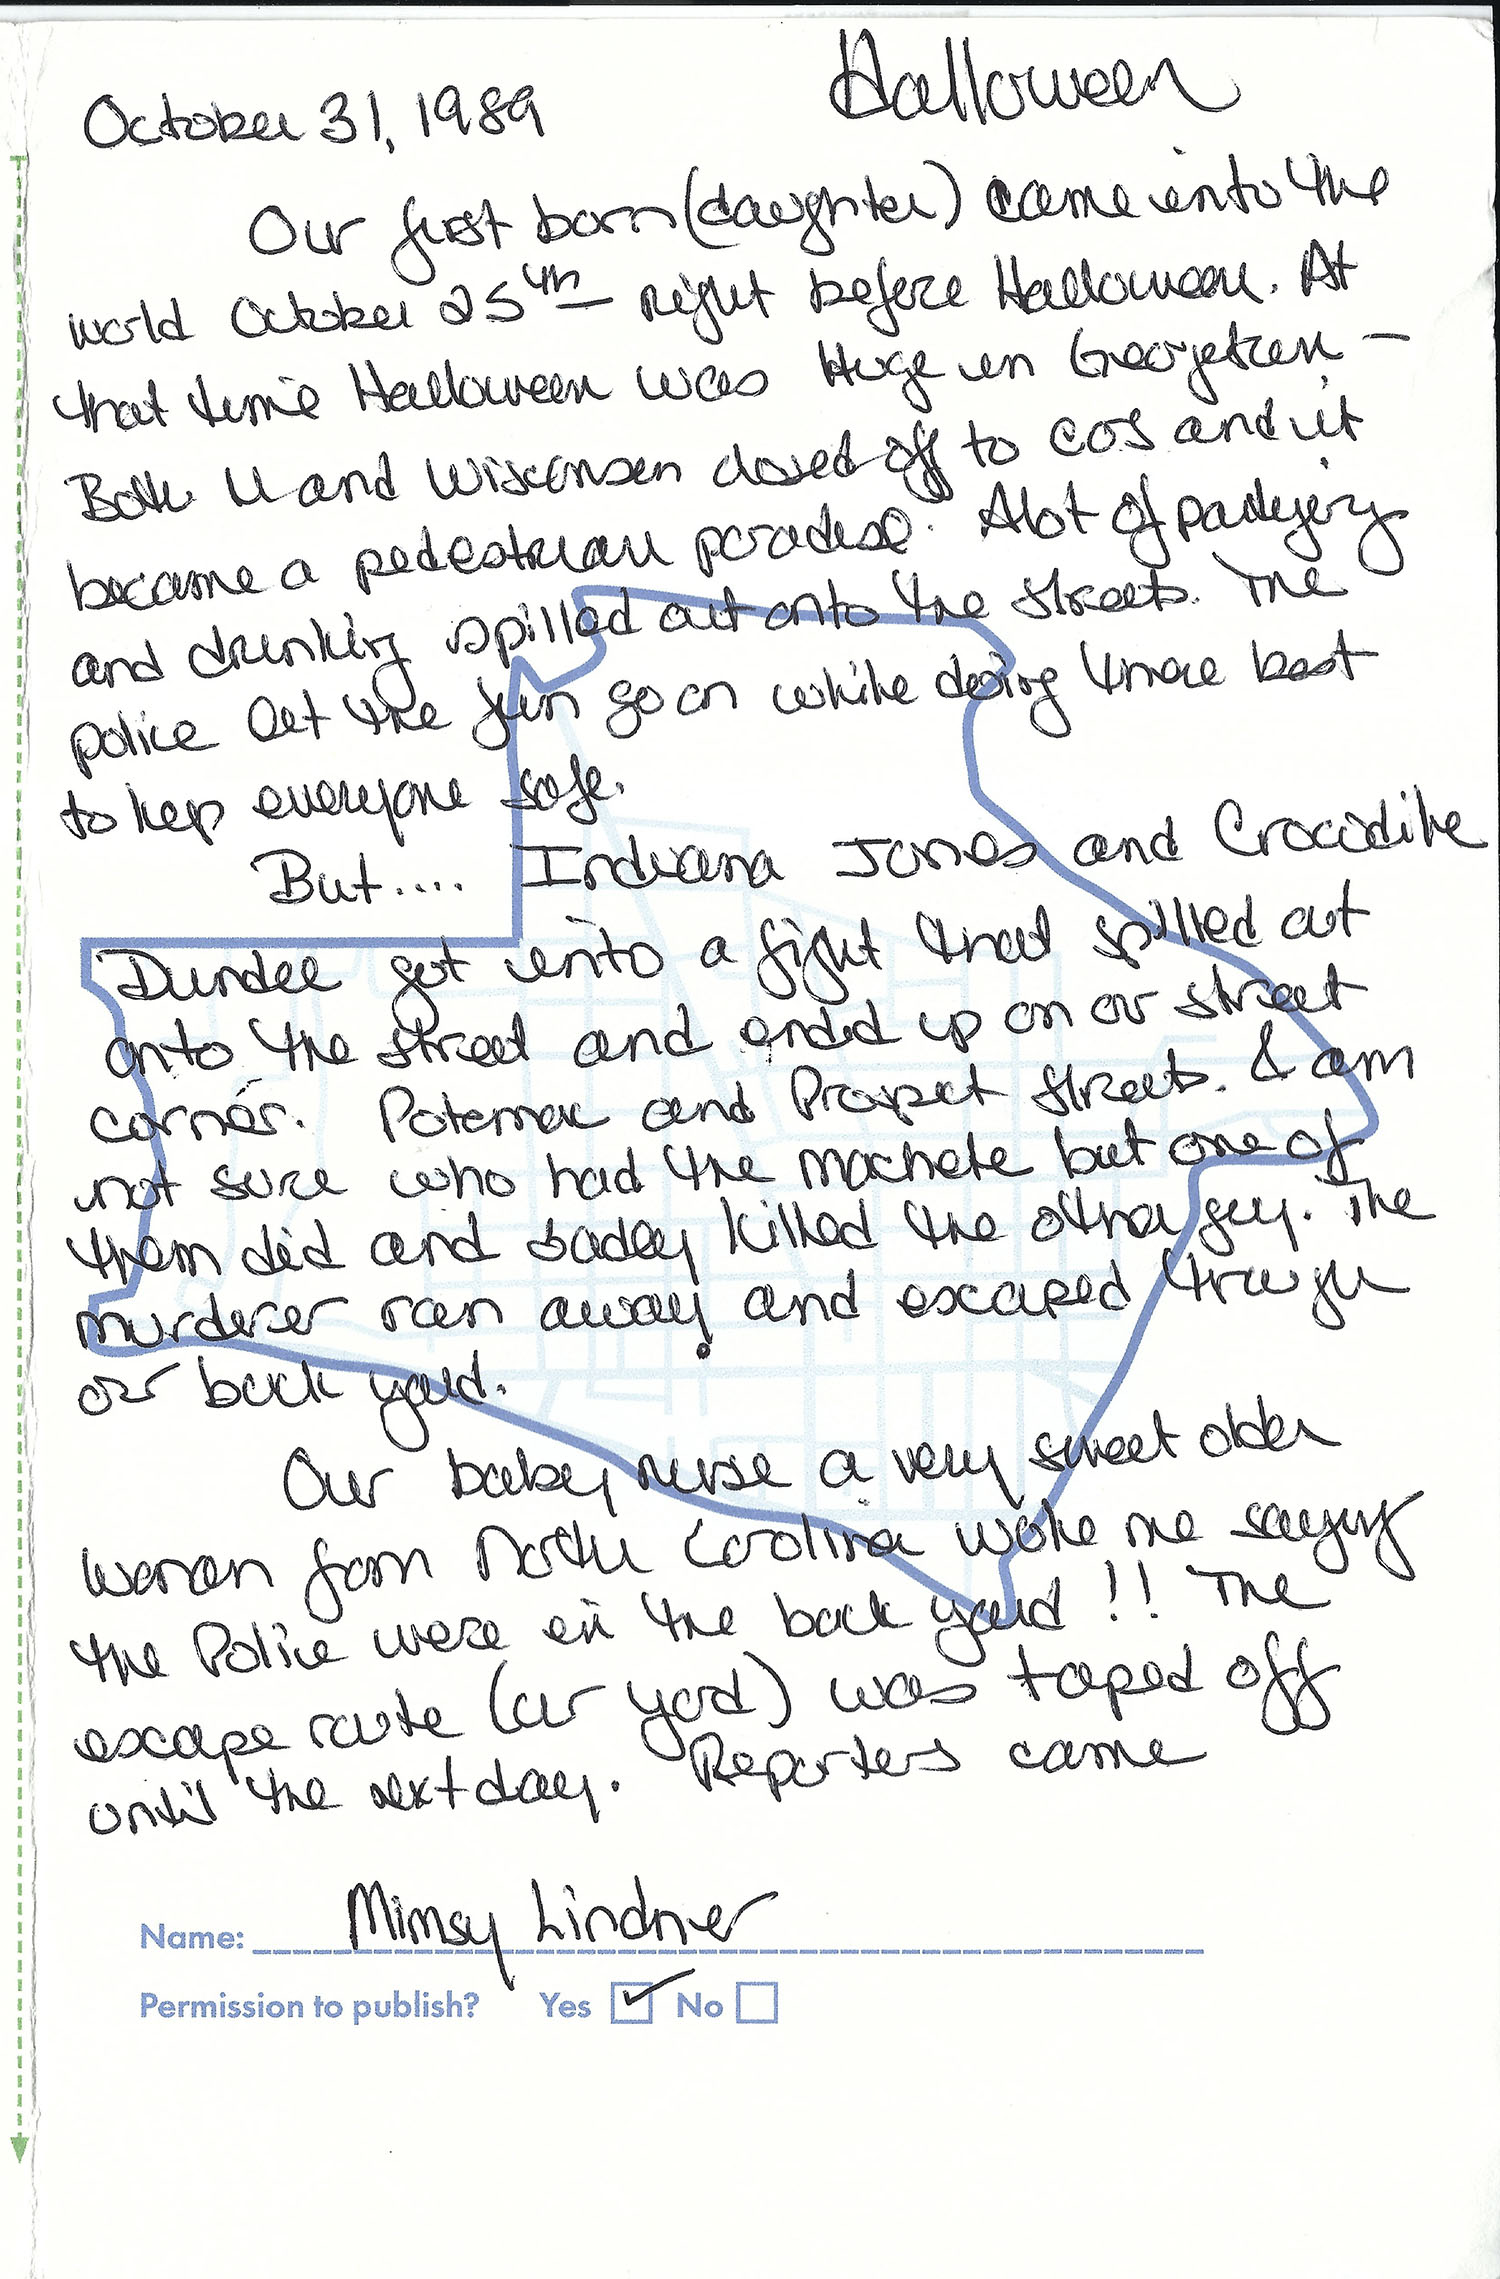 October 31, 1989
Halloween
Our first born (daughter) came into the
world October 25th right before Halloween. At
that time Halloween was Huge in Georgetown -
Both M and Wisconsin closed off to cars and it
became a pedestrian paradise. Alot of partying
and drinking spilled out onto the streets. The
police let the fun go on while doing there best
to kep everyone safe.
But.... Indiana Jones and Crocodile
Dundee got into a fight that spilled out
onto the street and ended up on our street
corner. Potomac and Prospect Streets. I am
not sure who had the machete but one of
them did and sadly killed the other guy. The
murderer ran away and escaped through
our back yard.
Our baby nurse a very sweet older
woman from North Carolina woke me saying
the Police were in the back yard!! The
escape route (our yard) was taped off
until the next day. Reporters came
Name: Mimsy Lindner
Permission to publish? Yes ✓ No